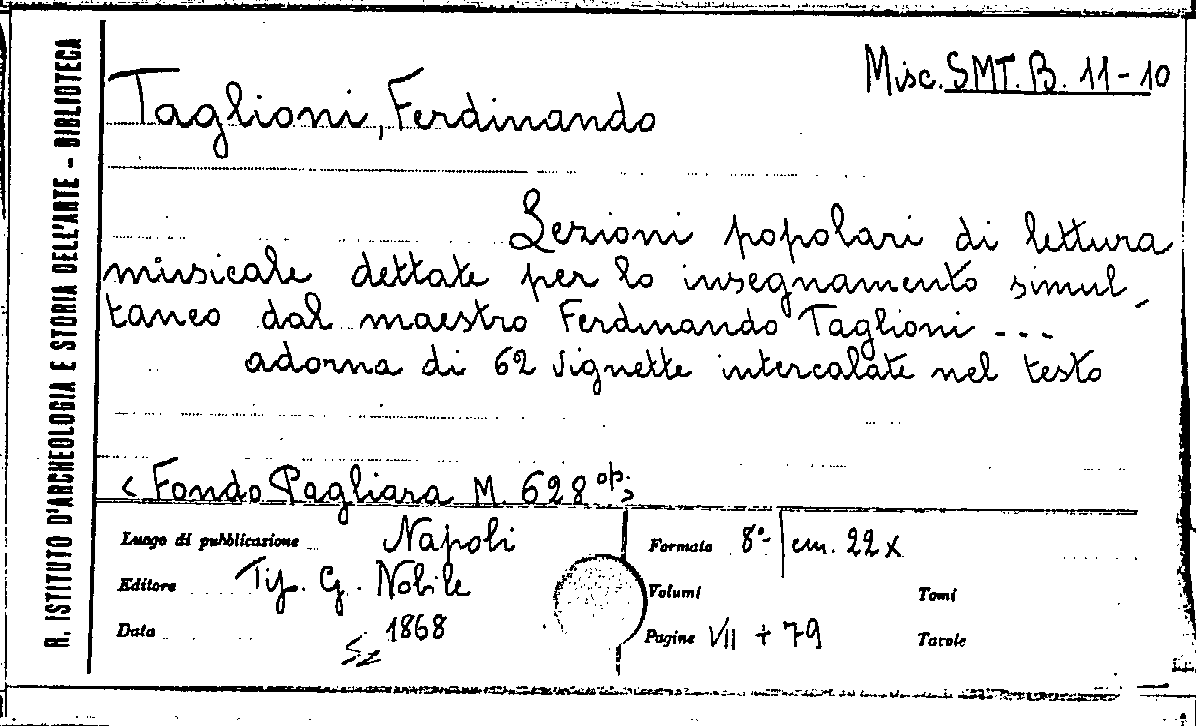 R. ISTITUTO D'ARCHEOLOGIA E STORIA DELL'ARTE - BIBLIOTECA
Misc. SMT. B. 11-10
Taglioni, Ferdinando
Lezioni popolari di lettura
musicale dettate per lo insegnamento simul-
taneo dal maestro Ferdinando Taglioni ---
adorna di 62 vignette intercalate nel testo
< Fondo Pagliara M. 628 op. >
Luogo di pubblicazione Napoli
Editore Tip. G. Nobile
Data 1868
Sz
Formato 8º | cm. 22 x
Volumi Tomi
Pagine VII + 79 Tavole